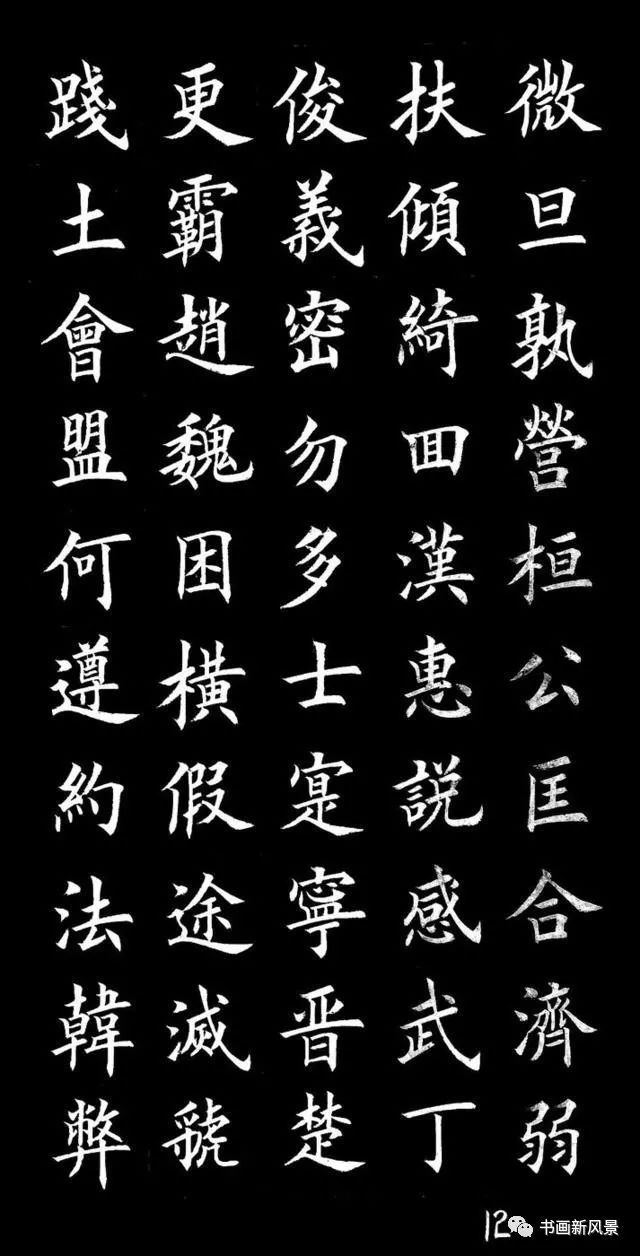 微旦孰營桓公匡合濟弱
扶傾綺回漢惠説感武丁
俊義密勿多士寔寧晋楚
更霸趙魏困橫假途滅虢
踐土會盟何遵約法韓弊
12
书画新风景